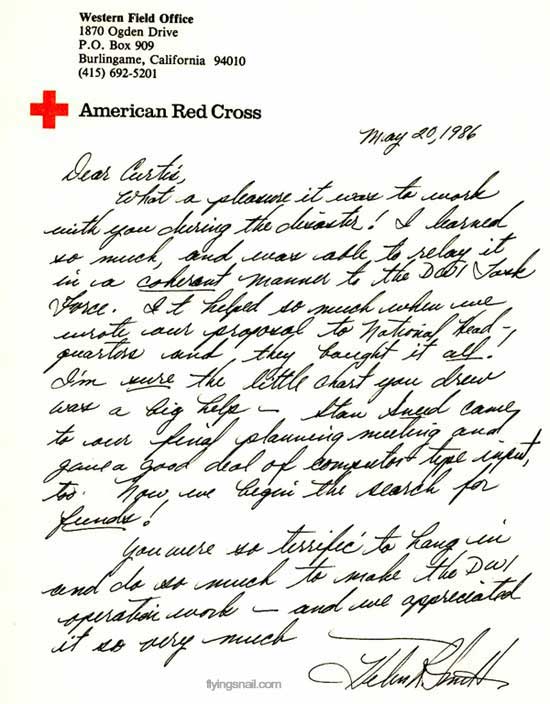 Western Field Office
1870 Ogden Drive
P.O. Box 909
Burlingame, California 94010
(415) 692-5201
American Red Cross
May 20, 1986
Dear Curtis,
What a pleasure it was to work
with you during the disaster! I learned
so much, and was able to relay it
in a coherent manner to the DWI Task
Force. It helped so much when we
wrote our proposal to National Head-
quarters and, they bought it all!
I'm sure the little chart you drew
was a big help – Stan Sneed came
to our final planning meeting and
gave a good deal of computer type input,
too. Now, we begin the search for
funds!
You were so terrific to hang in
and do so much to make the DWI
operation work – and we appreciated
it so very much
Helen R. Smith
flyingsnail.com